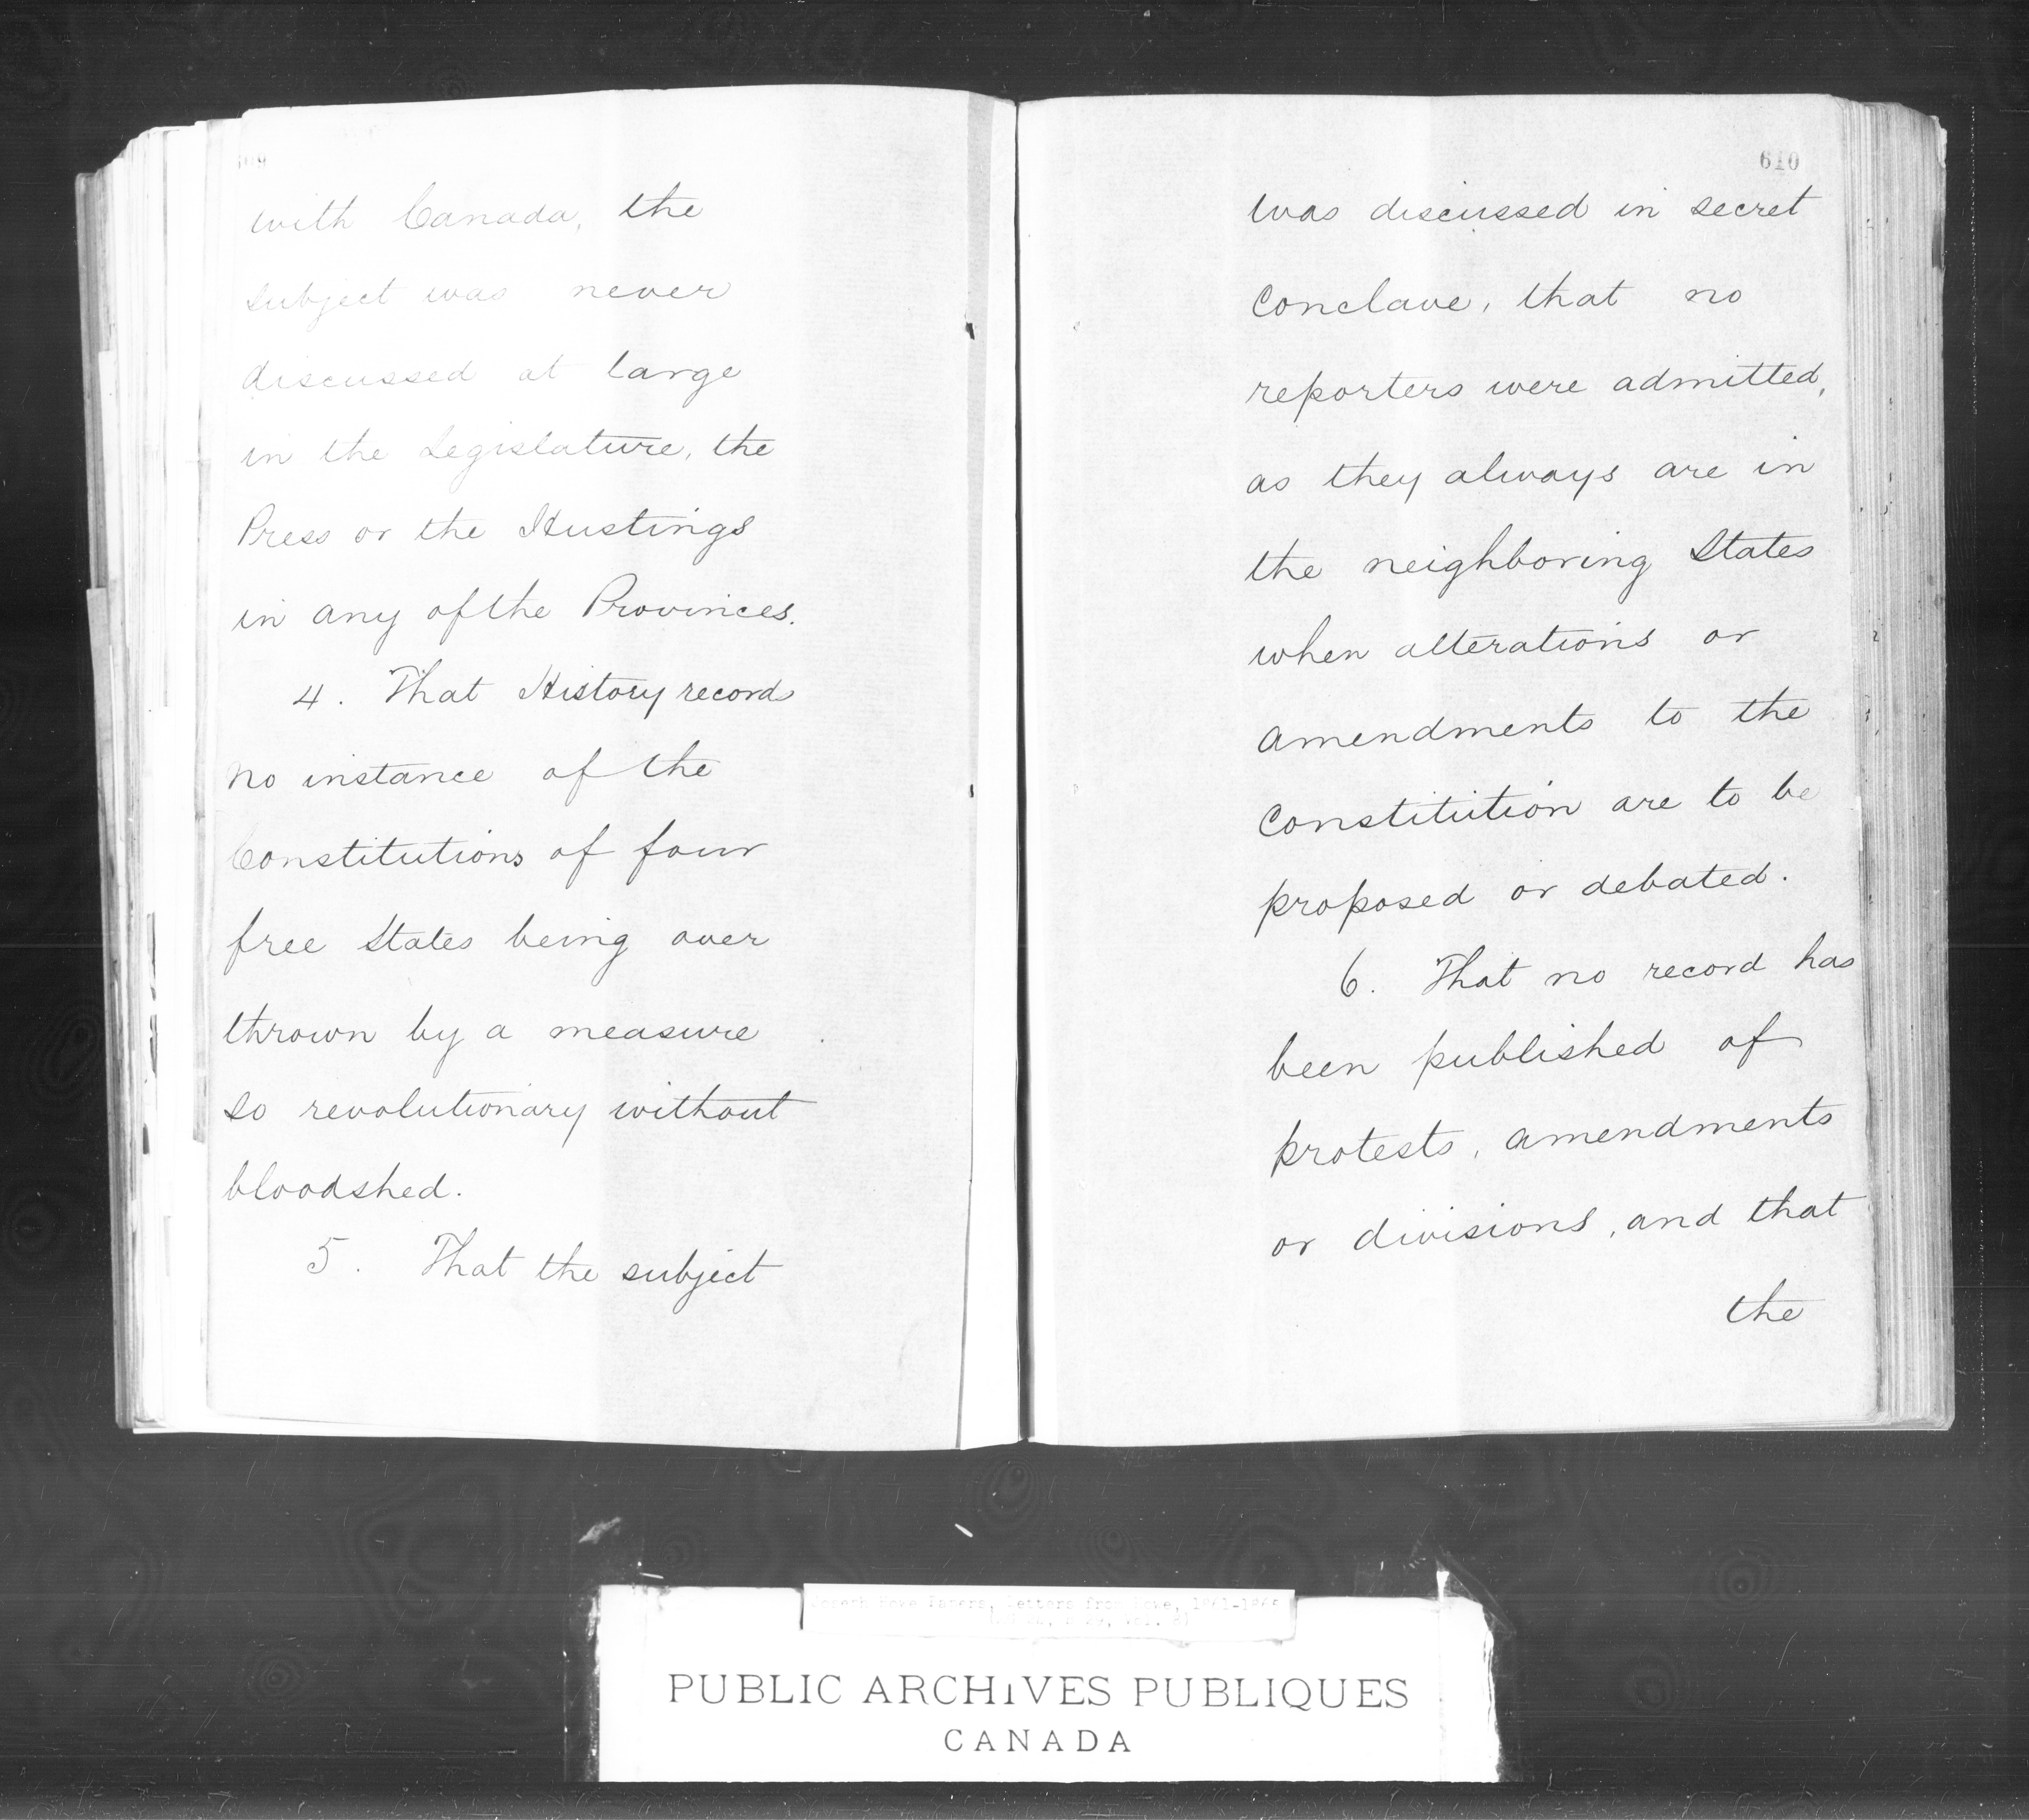 609
with Canada, the
subject was never
discussed at large
in the Legislature, the
Press or the Hustings
in any of the Provinces.
4. That History records
no instance of the
Constitutions of four
free States being over
thrown by a measure
so revolutionary without
bloodshed.
5. That the subject
610
was discussed in secret
Conclave, that no
reporters were admitted,
as they always are in
the neighboring States
when alterations or
amendments to the
Constitution are to be
proposed or debated.
6. That no record has
been published of
protests, amendments
or divisions, and that
the
Joseph Howe Papers, Letters from Howe,
PUBLIC ARCHIVES PUBLIQUES
CANADA